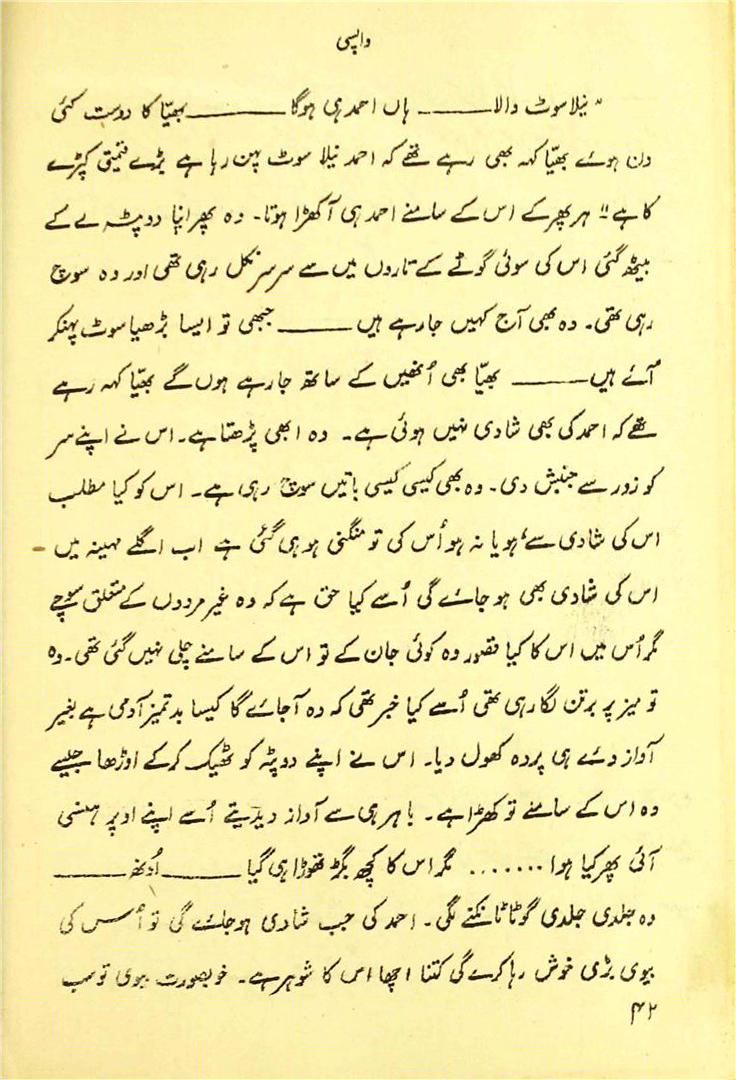 واپسی
" نیلا سوٹ والا ——— ہاں احمد ہی ہوگا ——— بھیّا کا دوست کئی
دن ہوئے بھیّا کہہ بھی رہے تھے کہ احمد نیلا سوٹ پہن رہا ہے بڑے قیمتی کپڑے
کا ہے" ہر پھر کے اس کے سامنے احمد ہی آ کھڑا ہوتا۔ وہ پھر اپنا دوپٹہ لے کے
بیٹھ گئی اس کی سوئی گوٹے کے تاروں میں سے سرسر نکل رہی تھی اور وہ سوچ
رہی تھی۔ وہ بھی آج کہیں جا رہے ہیں ——— جبھی تو ایسا بڑھیا سوٹ پہنکر
آئے ہیں ——— بھیّا بھی اُنھیں کے ساتھ جا رہے ہوں گے بھیّا کہہ رہے
تھے کہ احمد کی بھی شادی نہیں ہوئی ہے۔ وہ ابھی پڑھتا ہے۔ اس نے اپنے سر
کو زور سے جنبش دی۔ وہ بھی کیسی کیسی باتیں سوچ رہی ہے۔ اس کو کیا مطلب
اس کی شادی سے، ہو یا نہ ہو اُس کی تو منگنی ہو ہی گئی ہے اب اگلے مہینہ میں
اس کی شادی بھی ہو جائے گی اُسے کیا حق ہے کہ وہ غیر مردوں کے متعلق سوچے
مگر اُس میں اس کا کیا قصور وہ کوئی جان کے تو اس کے سامنے چلی نہیں گئی تھی۔ وہ
تو میز پر برتن لگا رہی تھی اُسے کیا خبر تھی کہ وہ آ جائے گا کیسا بدتمیز آدمی ہے بغیر
آواز دئے ہی پردہ کھول دیا۔ اس نے اپنے دوپٹہ کو ٹھیک کر کے اوڑھا جیسے
وہ اس کے سامنے تو کھڑا ہے۔ باہر ہی سے آواز دیدیتے اُسے اپنے اوپر ہنسی
آئی پھر کیا ہوا ....... مگر اس کا کچھ بگڑ تھوڑا ہی گیا ——— اُونھ ———
وہ جلدی جلدی گوٹا ٹانکنے لگی۔ احمد کی جب شادی ہو جائے گی تو اُس کی
بیوی بڑی خوش رہا کرے گی کتنا اچھا اس کا شوہر ہے۔ خوبصورت بیوی تو سب
۴۲